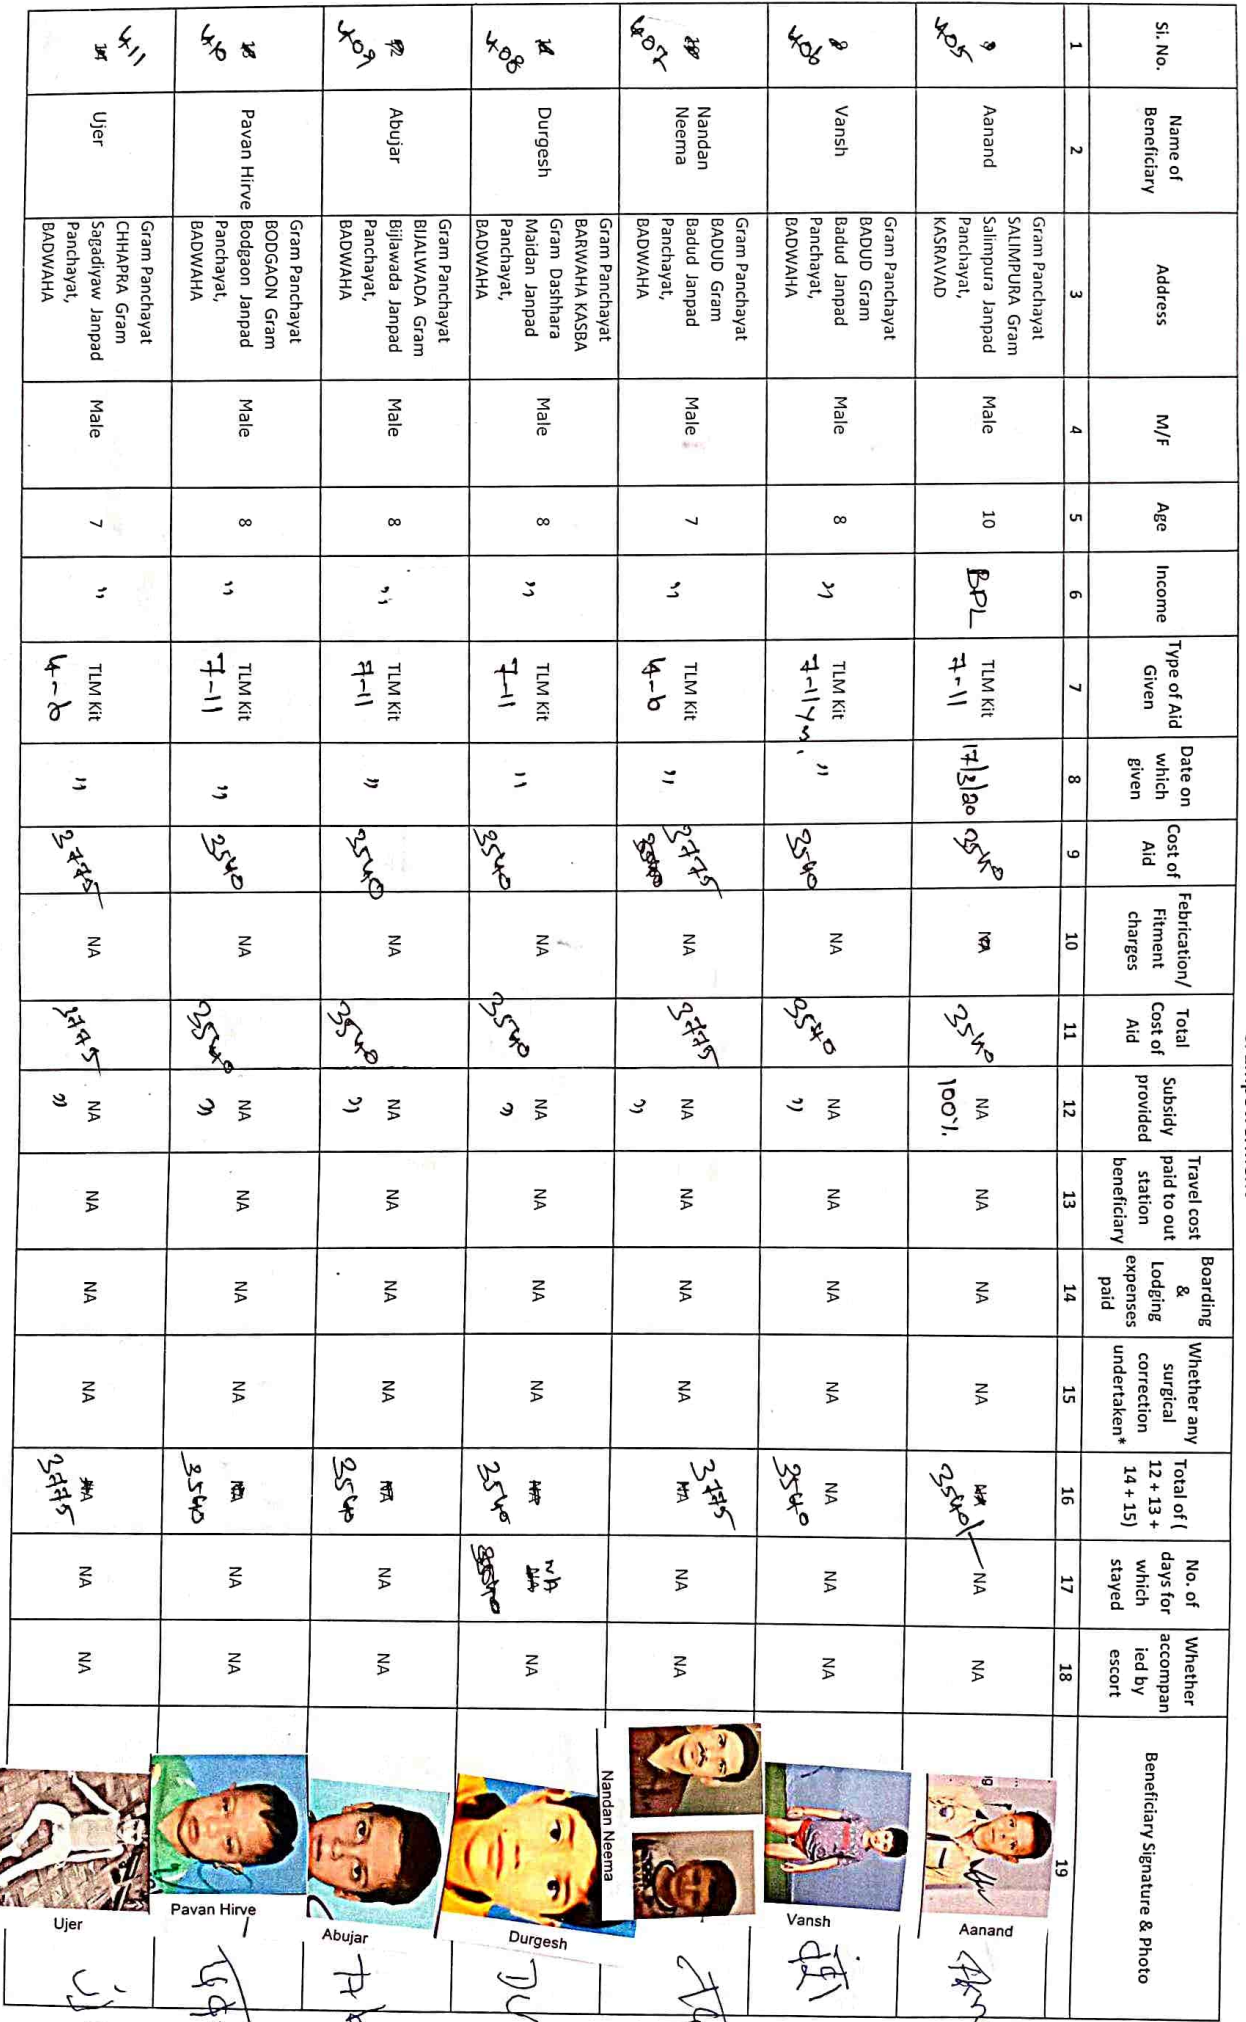 Si. No.
Name of
Beneficiary
Address
M/F
Age
Income
Type of Aid
Given
Date on
which
given
Cost of
Aid
Febrication/
Fitment
charges
Total
Cost of
Aid
Subsidy
provided
Travel cost
paid to out
station
beneficiary
Boarding
&
Lodging
expenses
paid
Whether any
surgical
correction
undertaken*
Total of (
12 + 13 +
14 + 15)
No. of
days for
which
stayed
Whether
accompan
ied by
escort
Beneficiary Signature & Photo
1 2 3 4 5 6 7 8 9 10 11 12 13 14 15 16 17 18 19
405
Aanand
Gram Panchayat
SALIMPURA Gram
Salimpura Janpad
Panchayat,
KASRAVAD
Male
10
BPL
TLM Kit
7-11
17/3/20
3540
NA
3540
NA
100%
NA
NA
NA
NA
3540/-
NA
NA
Aanand
406
Vansh
Gram Panchayat
BADUD Gram
Badud Janpad
Panchayat,
BADWAHA
Male
8
"
TLM Kit
7-11 yrs.
"
3540
NA
3540
NA
"
NA
NA
NA
NA
3540
NA
NA
Vansh
407
Nandan
Neema
Gram Panchayat
BADUD Gram
Badud Janpad
Panchayat,
BADWAHA
Male
7
"
TLM Kit
4-6
"
3775
NA
3775
NA
"
NA
NA
NA
3775
NA
NA
NA
Nandan Neema
408
Durgesh
Gram Panchayat
BARWAHA KASBA
Gram Dashhara
Maidan Janpad
Panchayat,
BADWAHA
Male
8
"
TLM Kit
7-11
"
3540
NA
3540
NA
"
NA
NA
NA
NA
3540
NA
NA
3540
NA
Durgesh
409
Abujar
Gram Panchayat
BIJALWADA Gram
Bijlawada Janpad
Panchayat,
BADWAHA
Male
8
"
TLM Kit
7-11
"
3540
NA
3540
NA
"
NA
NA
NA
NA
3540
NA
NA
Abujar
410
Pavan Hirve
Gram Panchayat
BODGAON Gram
Bodgaon Janpad
Panchayat,
BADWAHA
Male
8
"
TLM Kit
7-11
"
3540
NA
3540
NA
"
NA
NA
NA
NA
3540
NA
NA
Pavan Hirve
411
Ujer
Gram Panchayat
CHHAPRA Gram
Sagadiyaw Janpad
Panchayat,
BADWAHA
Male
7
"
TLM Kit
4-6
"
3775
NA
3775
NA
"
NA
NA
NA
NA
3775
NA
NA
Ujer